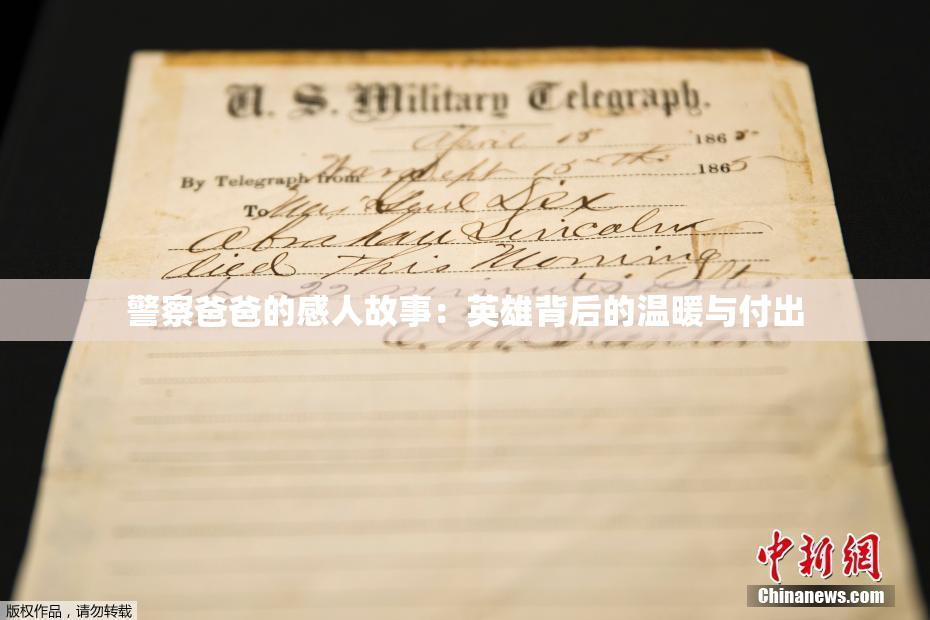 U. S. Military Telegraph.
April 15 1865
By Telegraph from War Dept 15th 1865
To Maj Genl Dix
Abraham Lincoln
died This Morning
at 22 minutes after
警察爸爸的感人故事：英雄背后的温暖与付出
E. M. Stanton
中新网
Chinanews.com
版权作品，请勿转载